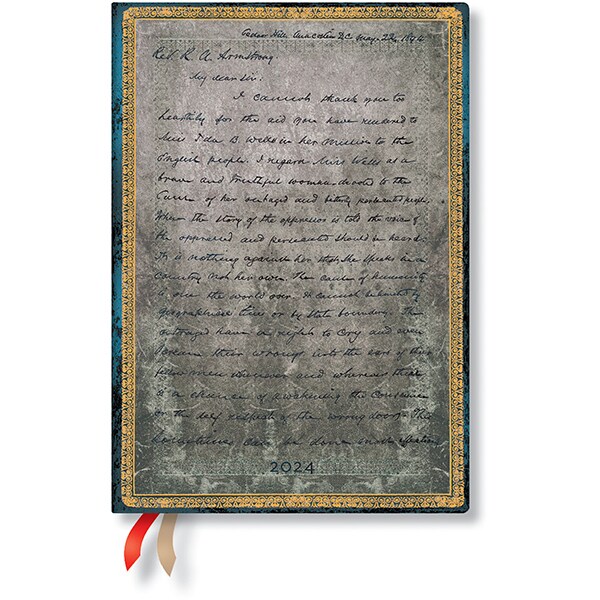 Cedar Hill Anacostia D.C. May. 22, 1894
Rev. R. A. Armstrong
My dear Sir:
I cannot thank you too
heartily for the aid you have rendered to
Miss Ida B. Wells in her mission to the
English people. I regard Miss Wells as a
brave and truthful woman devoted to the
Cause of her outraged and bitterly persecuted people.
When the story of the oppressor is told the voice of
the oppressed and persecuted should be heard.
It is nothing against her that she speaks in a
Country not her own. The cause of humanity
is one the world over. It cannot be limited by
geographical lines or by State boundary. The
outraged have a right to Cry and even
scream their wrongs into the ears of their
fellow men whenever and wherever there
is a chance of awakening the Conscience
or the self respect of the wrong doer. This
sometimes can be done more
2024